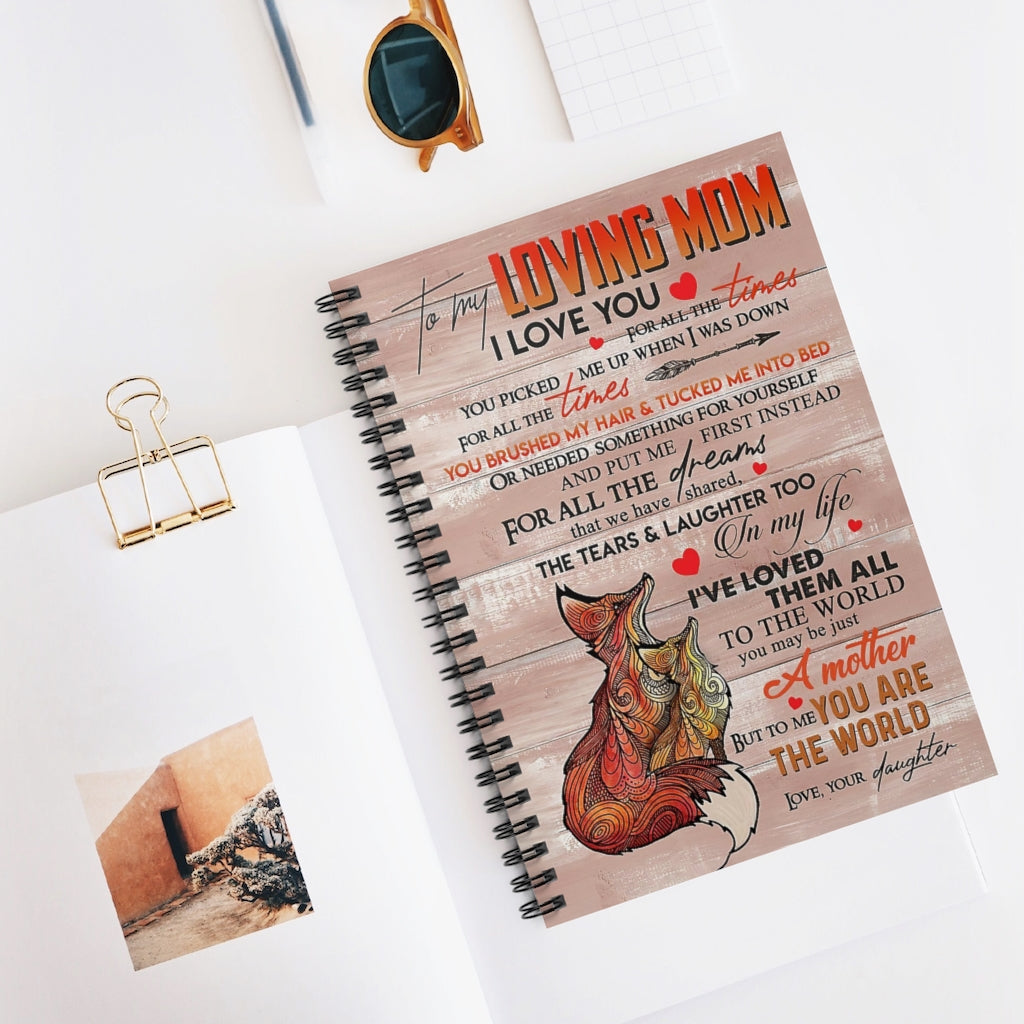 To my LOVING MOM
I LOVE YOU
FOR ALL THE times
YOU PICKED ME UP WHEN I WAS DOWN
FOR ALL THE times
YOU BRUSHED MY HAIR & TUCKED ME INTO BED
OR NEEDED SOMETHING FOR YOURSELF
AND PUT ME FIRST INSTEAD
FOR ALL THE dreams
that we have shared,
THE TEARS & LAUGHTER TOO
In my life
I'VE LOVED
THEM ALL
TO THE WORLD
you may be just
A mother
BUT TO ME YOU ARE
THE WORLD
LOVE, YOUR daughter